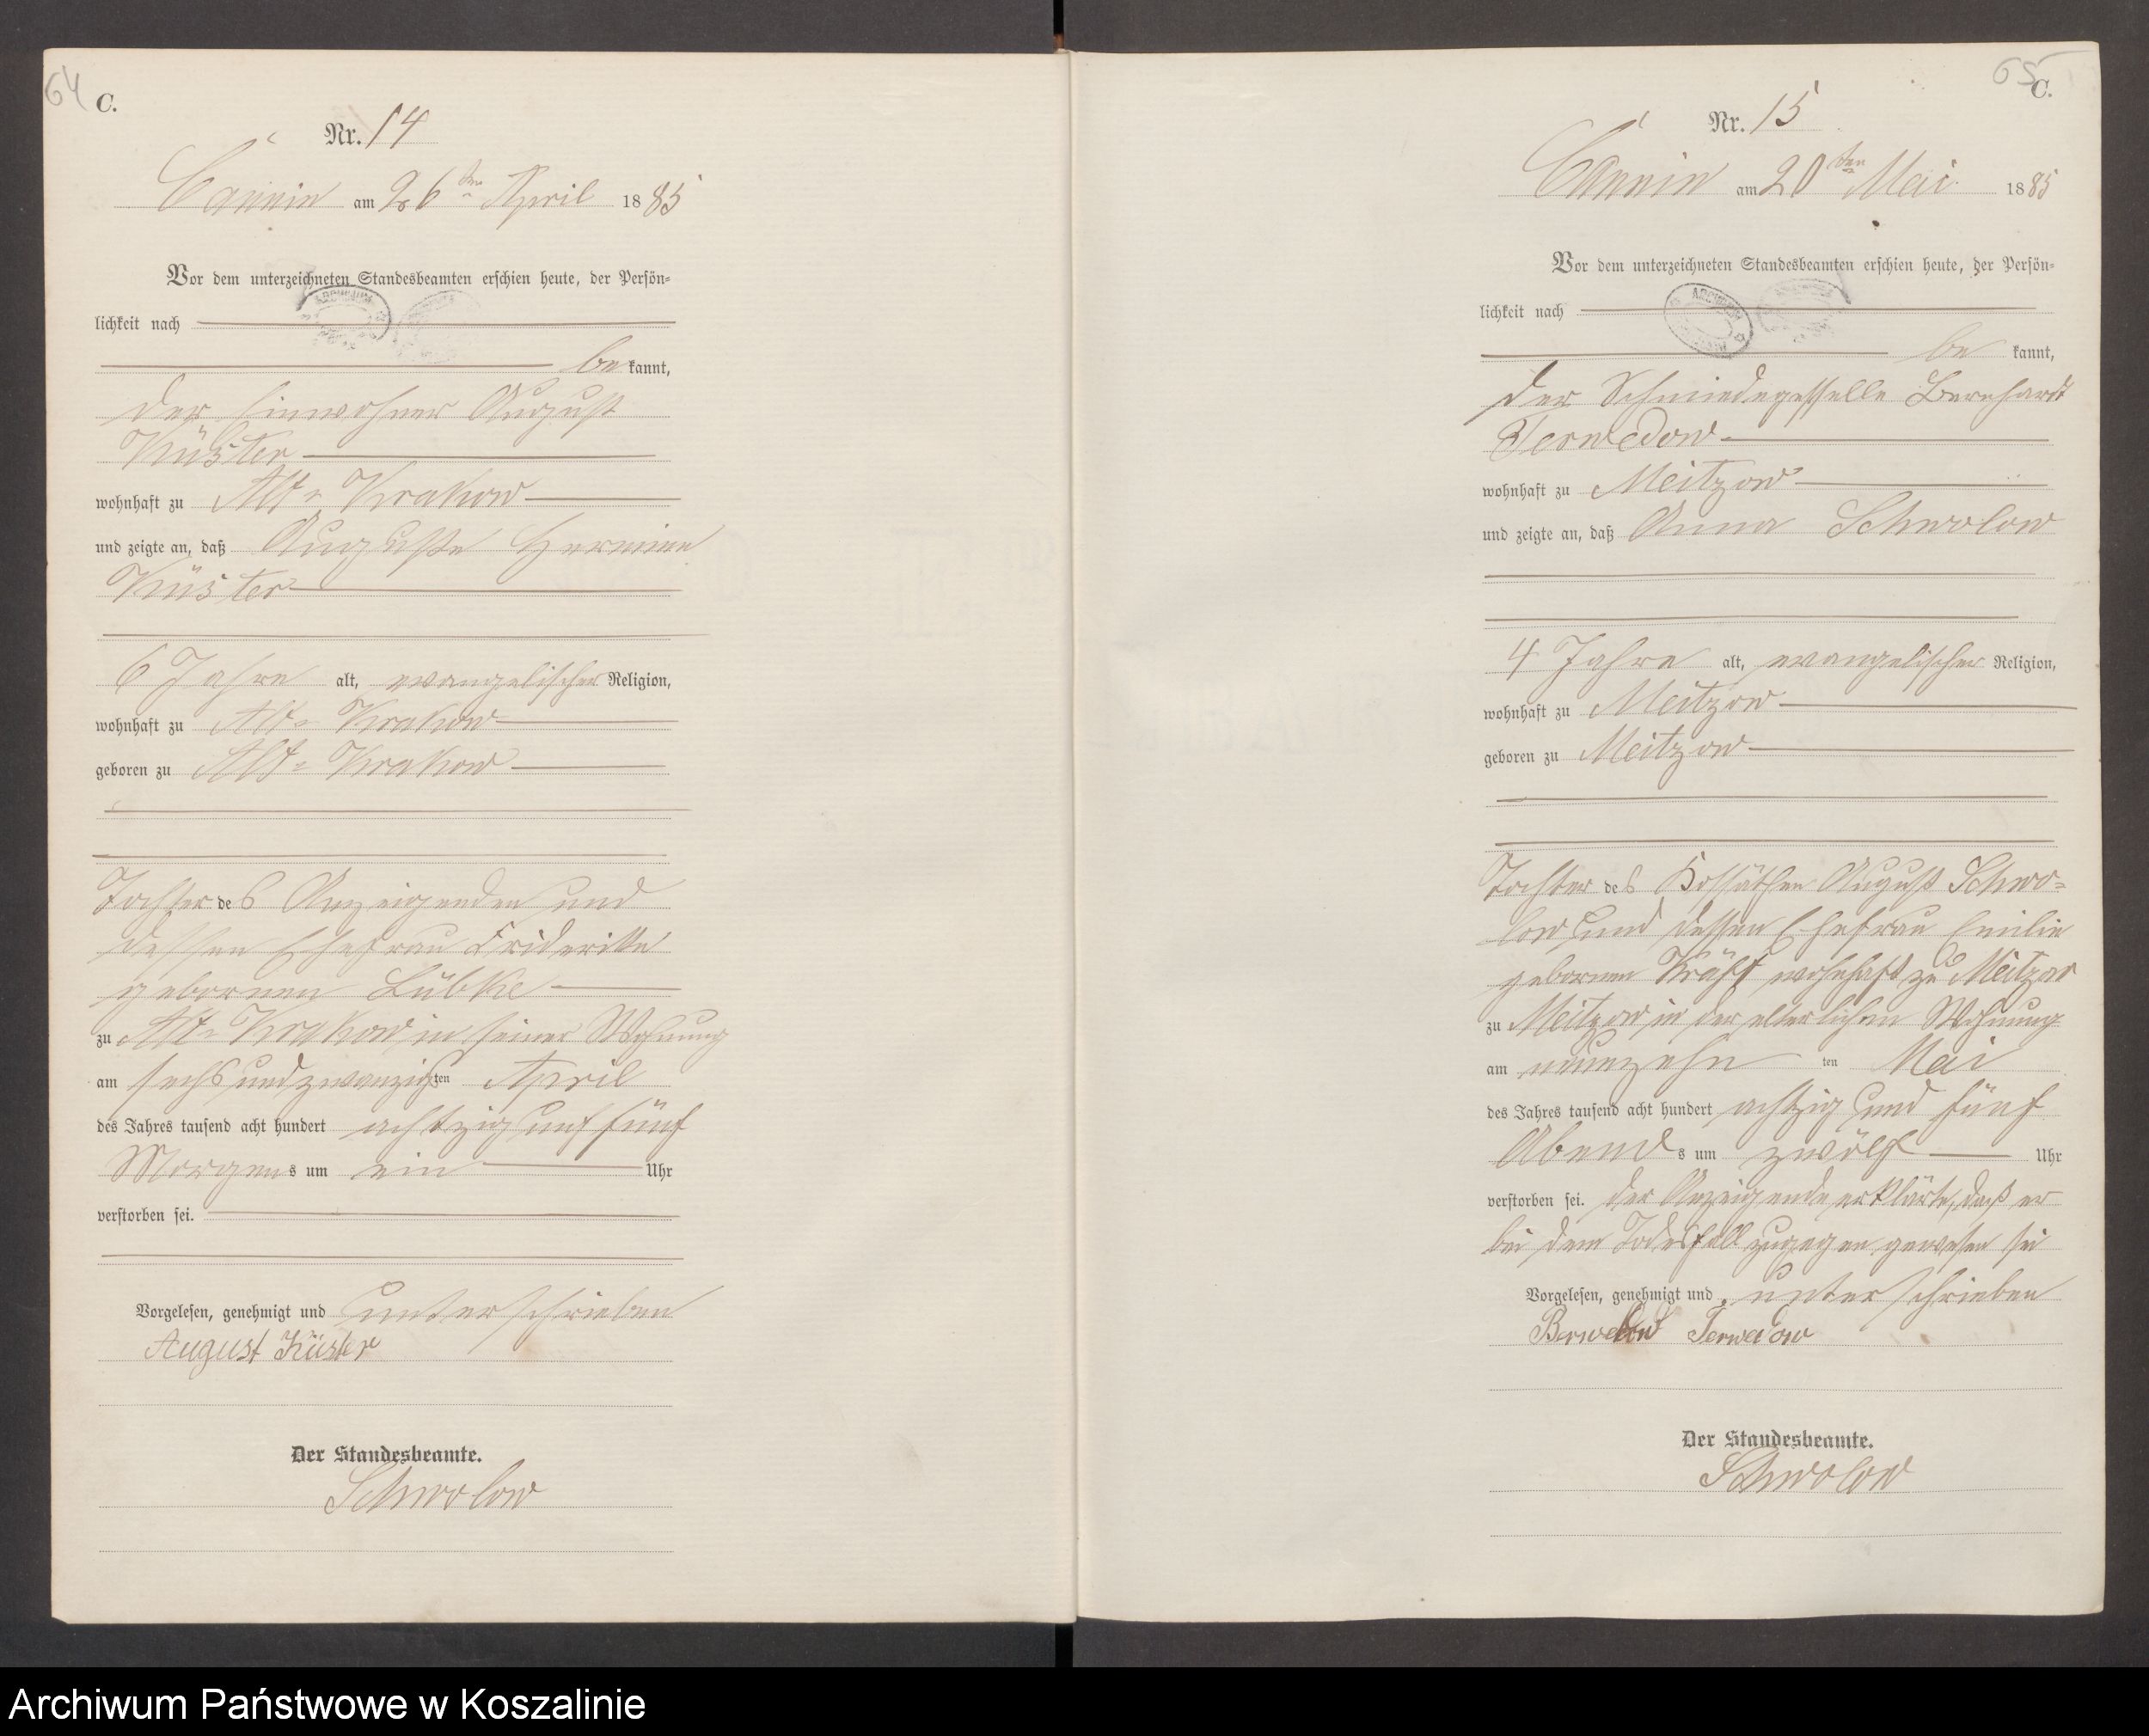 64
C.
Nr. 14
Cannin am 26ten April 1885
Vor dem unterzeichneten Standesbeamten erschien heute, der Persön=
lichkeit nach
be kannt,
der Einwohner August
Küster
wohnhaft zu Alt= Krakow
und zeigte an, daß Auguste Hermine
Küster
6 Jahre alt, evangelischer Religion,
wohnhaft zu Alt= Krakow
geboren zu Alt= Krakow
Tochter des Anzeigenden und
dessen Ehefrau Friderike
gebornen Lübke
zu Alt= Krakow in seiner Wohnung
am sechs und zwanzigsten April
des Jahres tausend acht hundert achtzig und fünf
Morgens um ein Uhr
verstorben sei.
Vorgelesen, genehmigt und unterschrieben
August Küster
Der Standesbeamte.
Schwolow
65
C.
Nr. 15
Cannin am 20ten Mai 1885
Vor dem unterzeichneten Standesbeamten erschien heute, der Persön=
lichkeit nach
be kannt,
der Schmiedegesselle Bernhardt
Terwedow
wohnhaft zu Meitzow
und zeigte an, daß Anna Schwolow
4 Jahre alt, evangelischer Religion,
wohnhaft zu Meitzow
geboren zu Meitzow
Tochter des Kossäthen August Schwo=
low und dessen Ehefrau Emilie
gebornen wohnhaft zu Meitzow
zu Meitzow in der elterlichen Wohnung
am neunzehn ten Mai
des Jahres tausend acht hundert achtzig und fünf
Abends um zwölf Uhr
verstorben sei. Der Anzeigende erklärte, daß er
bei dem Todesfall zugegen gewesen sei
Vorgelesen, genehmigt und unterschrieben
Terwedow
Der Standesbeamte.
Schwolow
Archiwum Państwowe w Koszalinie